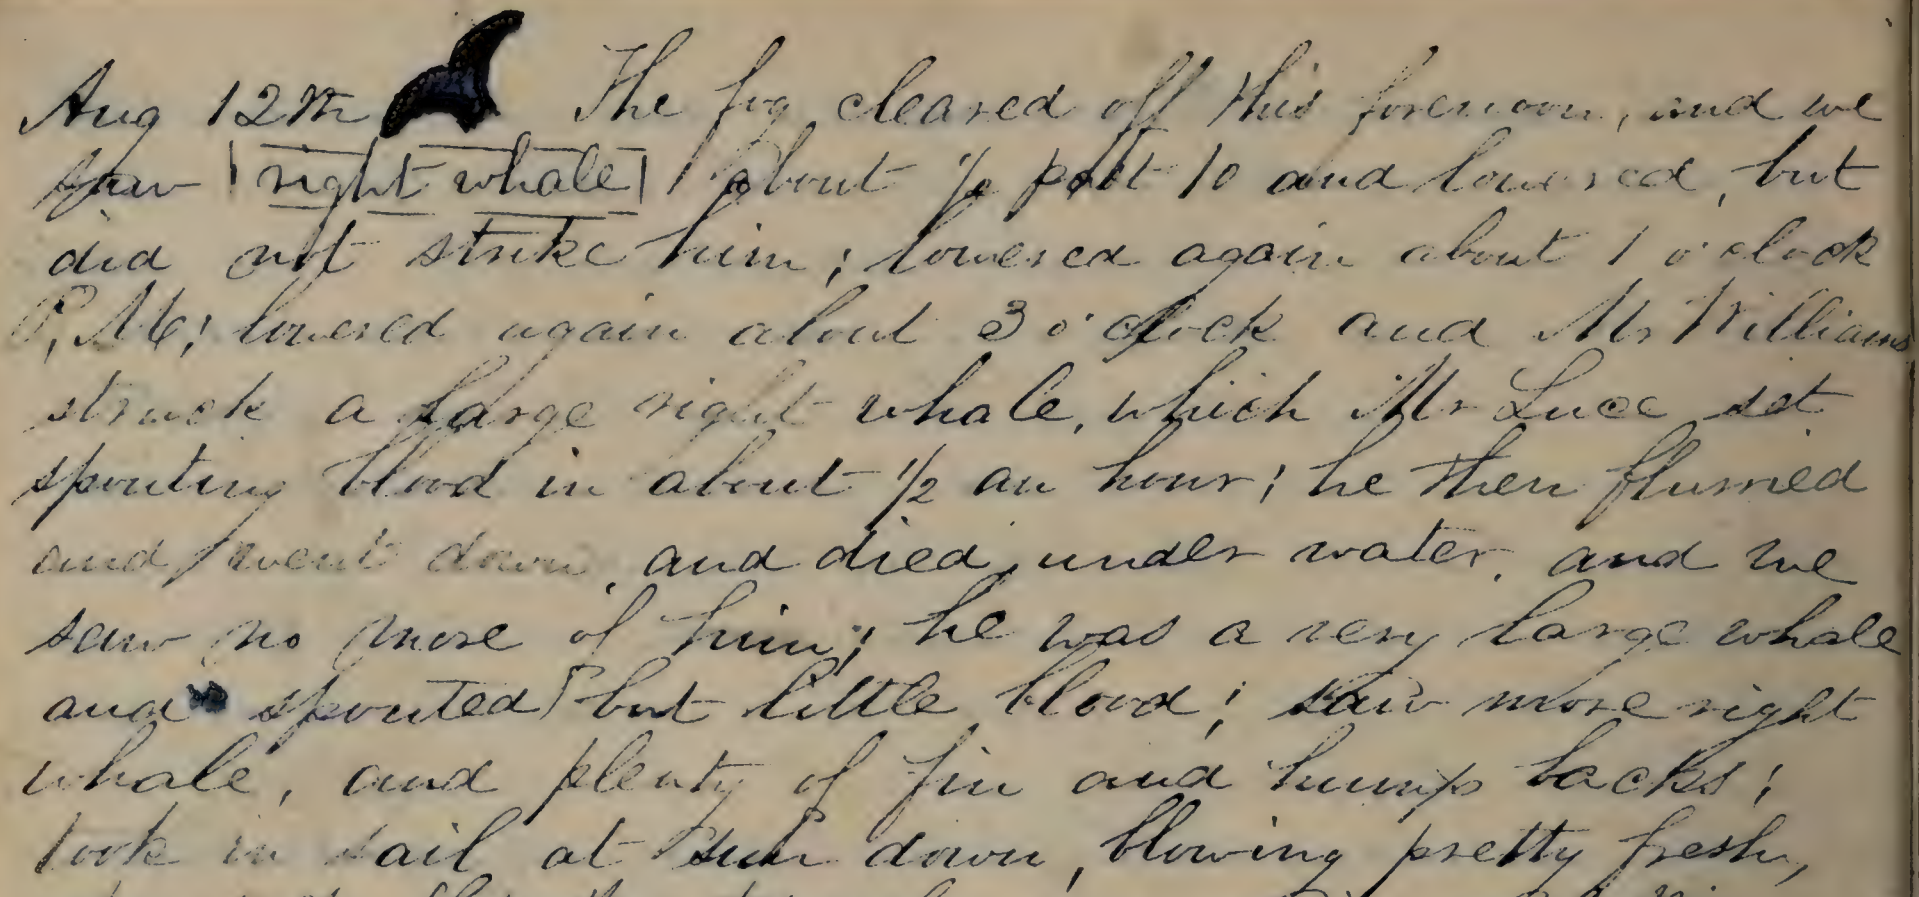 Aug 12th The fog cleared off this forenoon, and we
saw right whale about ½ past 10 and lowered, but
did not strike him; lowered again about 1 o'clock
P,M; lowered again about 3 o'clock and Mr Williams
struck a large right whale, which Mr Luce set
spouting blood in about 1/2 an hour; he then flurried
and went down, and died under water, and we
saw no more of him; he was a very large whale
and spouted but little blood; saw more right
whale, and plenty of fin and hump backs;
took in sail at sun down, blowing pretty fresh,